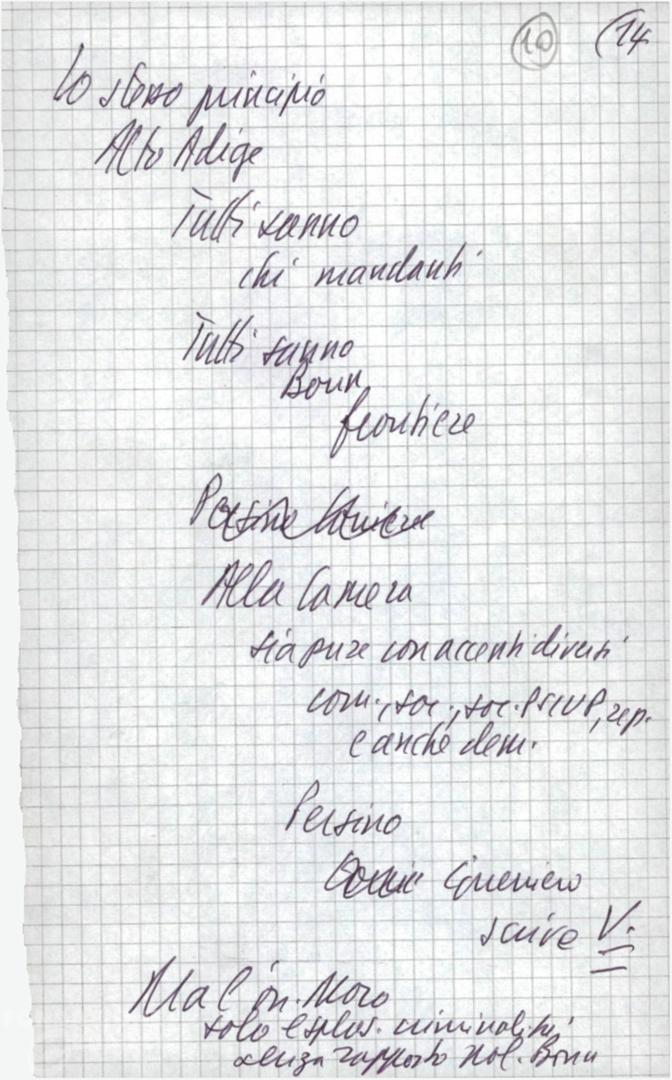 10 14
Lo stesso principio
Alto Adige
Tutti sanno
chi mandanti
Tutti sanno
Bonn
frontiere
Alla Camera
sia pure con accenti diversi
com., soc., soc. PSIUP, rep.
e anche dem.
Persino
Guerriero
scrive V.
Ma l'on. Moro
solo esplos. criminalità
senza rapporto pol. Bonn